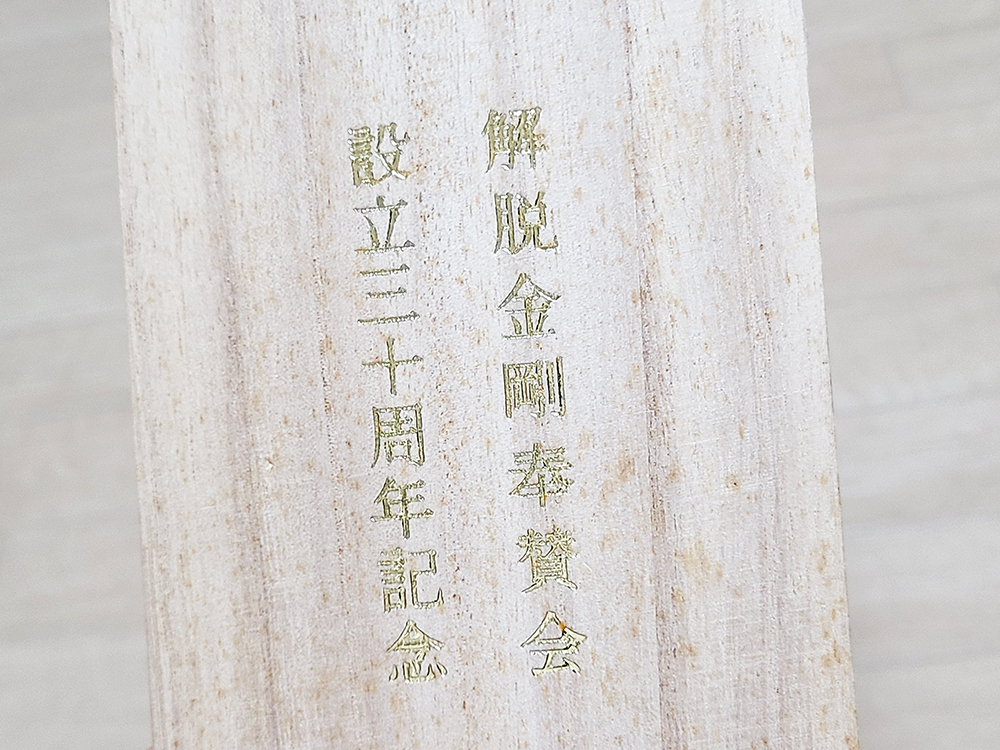 解脱金剛奉賛会
設立三十周年記念